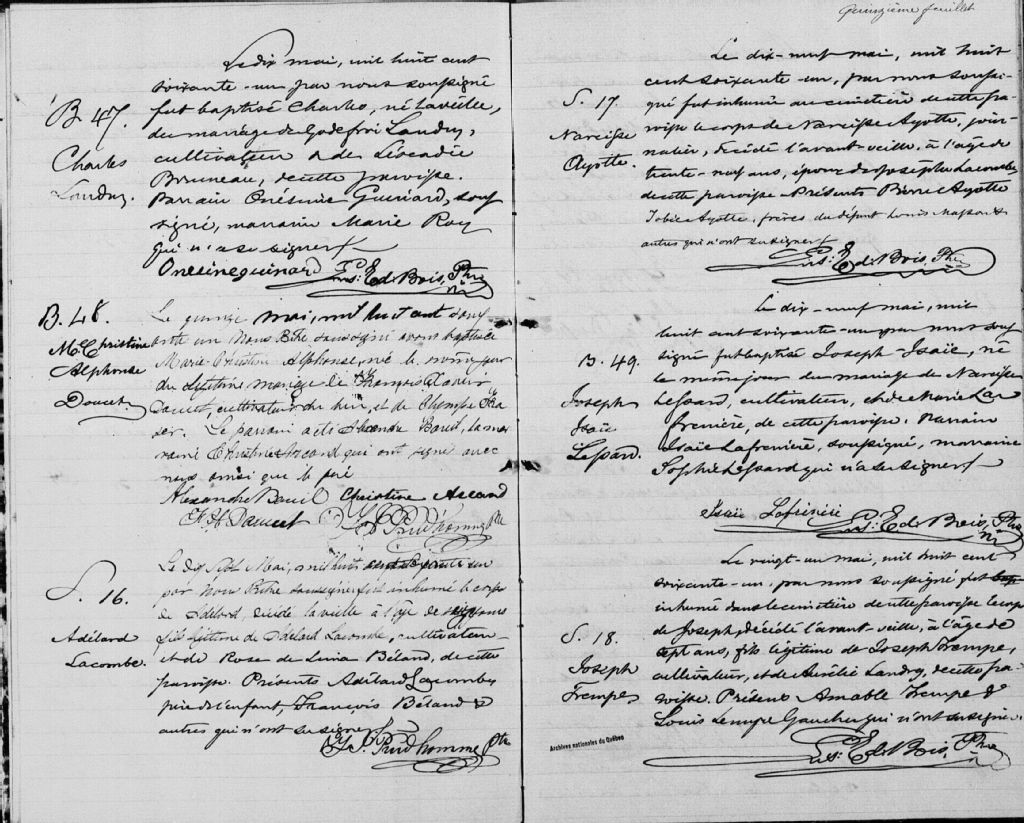 B. 47.
Charles
Landry.
Le dix mai, mil huit cent
soixante-un par nous soussigné
fut baptisé Charles, né la veille,
du mariage de Godefroi Landry,
cultivateur & de Léocadie
Bruneau, de cette paroisse.
Parrain Onésime Guinard, sous
signé, marraine Marie Roy
qui n'a su signer
Onesime guinard Ls. Ed. Bois, Ptre
B. 48.
M. Christine
Alphonse
Doucet
Le quinze mai, mil huit cent soix
ante un Nous Ptre soussigné avons baptisé
Marie Christine Alphonse, né le même jour
du légitime mariage de François Xavier
Doucet, cultivateur du lieu, et de
Le parrain a été Alexandre Bareil, la mar
raine Christine Arcand qui ont signé avec
nous ainsi que le père
Alexandre Bareil Christine Arcand
F. X. Doucet Prud'homme Ptre
S. 16.
Adélard
Lacombe.
Le dix Mai, mil huit cent soixante un
par Nous Ptre soussigné fut inhumé le corps
de Adélard, décédé la veille à l'âge de
fils légitime de Adélard Lacombe, cultivateur
et de Rose de Lima Béland, de cette
paroisse. Présents Adélard Lacombe
père de l'enfant, François Béland &
autres qui n'ont su signer
Prud'homme Ptre
Quinzième feuillet
S. 17.
Narcisse
Ayotte.
Le dix-neuf mai, mil huit
cent soixante-un, par nous soussi-
gné fut inhumé au cimetière de cette pa-
roisse le corps de Narcisse Ayotte, jour-
nalier, décédé l'avant-veille, à l'âge de
trente-neuf ans, époux de Josephte Lacombe
de cette paroisse. Présents Pierre Ayotte
Tobie Ayotte, frères du défunt Louis Masson &
autres qui n'ont su signer
Ls. Ed. Bois, Ptre
B. 49.
Joseph
Isaïe
Lessard.
Le dix-neuf mai, mil
huit cent soixante-un par nous sous
signé fut baptisé Joseph-Isaïe, né
le même jour du mariage de Narcisse
Lessard, cultivateur, et de Marie La
frenière, de cette paroisse. Parrain
Isaïe Lafrenière, soussigné, marraine
Sophie Lessard qui n'a su signer
Isaïe Lafrinière Ls. Ed. Bois, Ptre
S. 18.
Joseph
Trempe
Le vingt-un mai, mil huit cent
soixante-un, par nous soussigné fut
inhumé dans le cimetière de cette paroisse le corps
de Joseph, décédé l'avant-veille, à l'âge de
sept ans, fils légitime de Joseph Trempe,
cultivateur, et de Aurélie Landry, de cette pa-
roisse. Présents Amable Trempe &
Louis Lemyre Gaucher qui n'ont su signer.
Ls. Ed. Bois, Ptre
Archives nationales du Québec